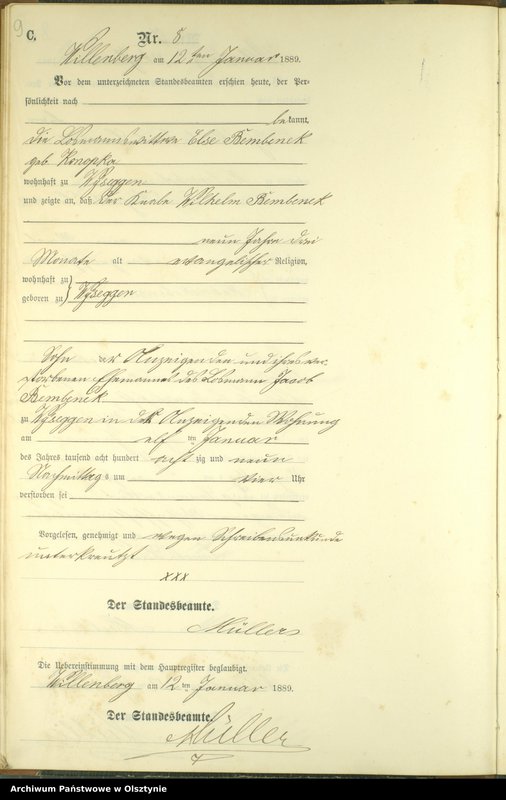 9
C.
Nr. 8
Willenberg am 12 ten Januar 1889.
Vor dem unterzeichneten Standesbeamten erschien heute, der Per-
sönlichkeit nach
bekannt,
die Losmannswittwe Else Bembenek
geb. Konopka
wohnhaft zu Wyseggen
und zeigte an, daß der Knabe Wilhelm Bembenek
neun Jahre drei
Monate alt evangelischer Religion,
wohnhaft zu
geboren zu } Wyseggen
Sohn der Anzeigenden und ihres ver-
storbenen Ehemannes des Losmann Jacob
Bembenek
zu Wyseggen in der Anzeigenden Wohnung
am elf ten Januar
des Jahres tausend acht hundert acht zig und neun
Nachmittag s um vier Uhr
verstorben sei
Vorgelesen, genehmigt und wegen Schreibensunkunde
unterkreuzt
xxx
Der Standesbeamte.
Müller
Die Uebereinstimmung mit dem Hauptregister beglaubigt.
Willenberg am 12 ten Januar 1889.
Der Standesbeamte.
Müller
Archiwum Państwowe w Olsztynie